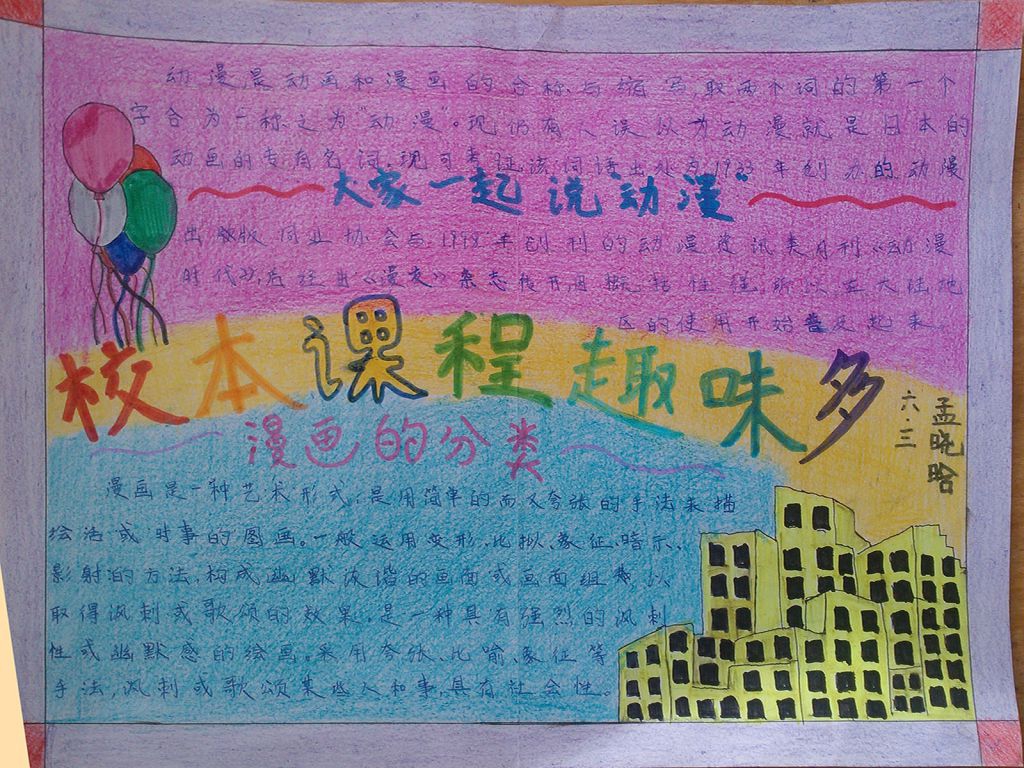 动漫是动画和漫画的合称与缩写,取两个词的第一个
字合为一称之为“动漫”。现仍有人误以为动漫就是日本的
动画的专有名词,现可考证该词语出处为1993年创办的动漫
大家一起说“动漫”
出版同业协会与1998年创刊的动漫资讯类月刊《动漫
时代》,后经由《漫友》杂志传开因概括性强,所以在大陆地
区的使用开始普及起来
校本课程趣味多
六.三
孟晓晗
漫画的分类
漫画是一种艺术形式,是用简单的而又夸张的手法来描
绘生活或时事的图画。一般运用变形、比拟、象征、暗示、
影射的方法,构成幽默诙谐的画面或画面组 以
取得讽刺或歌颂的效果,是一种具有强烈的讽刺
性或幽默感的绘画。采用夸张、比喻、象征等
手法,讽刺或歌颂某些人和事,具有社会性。